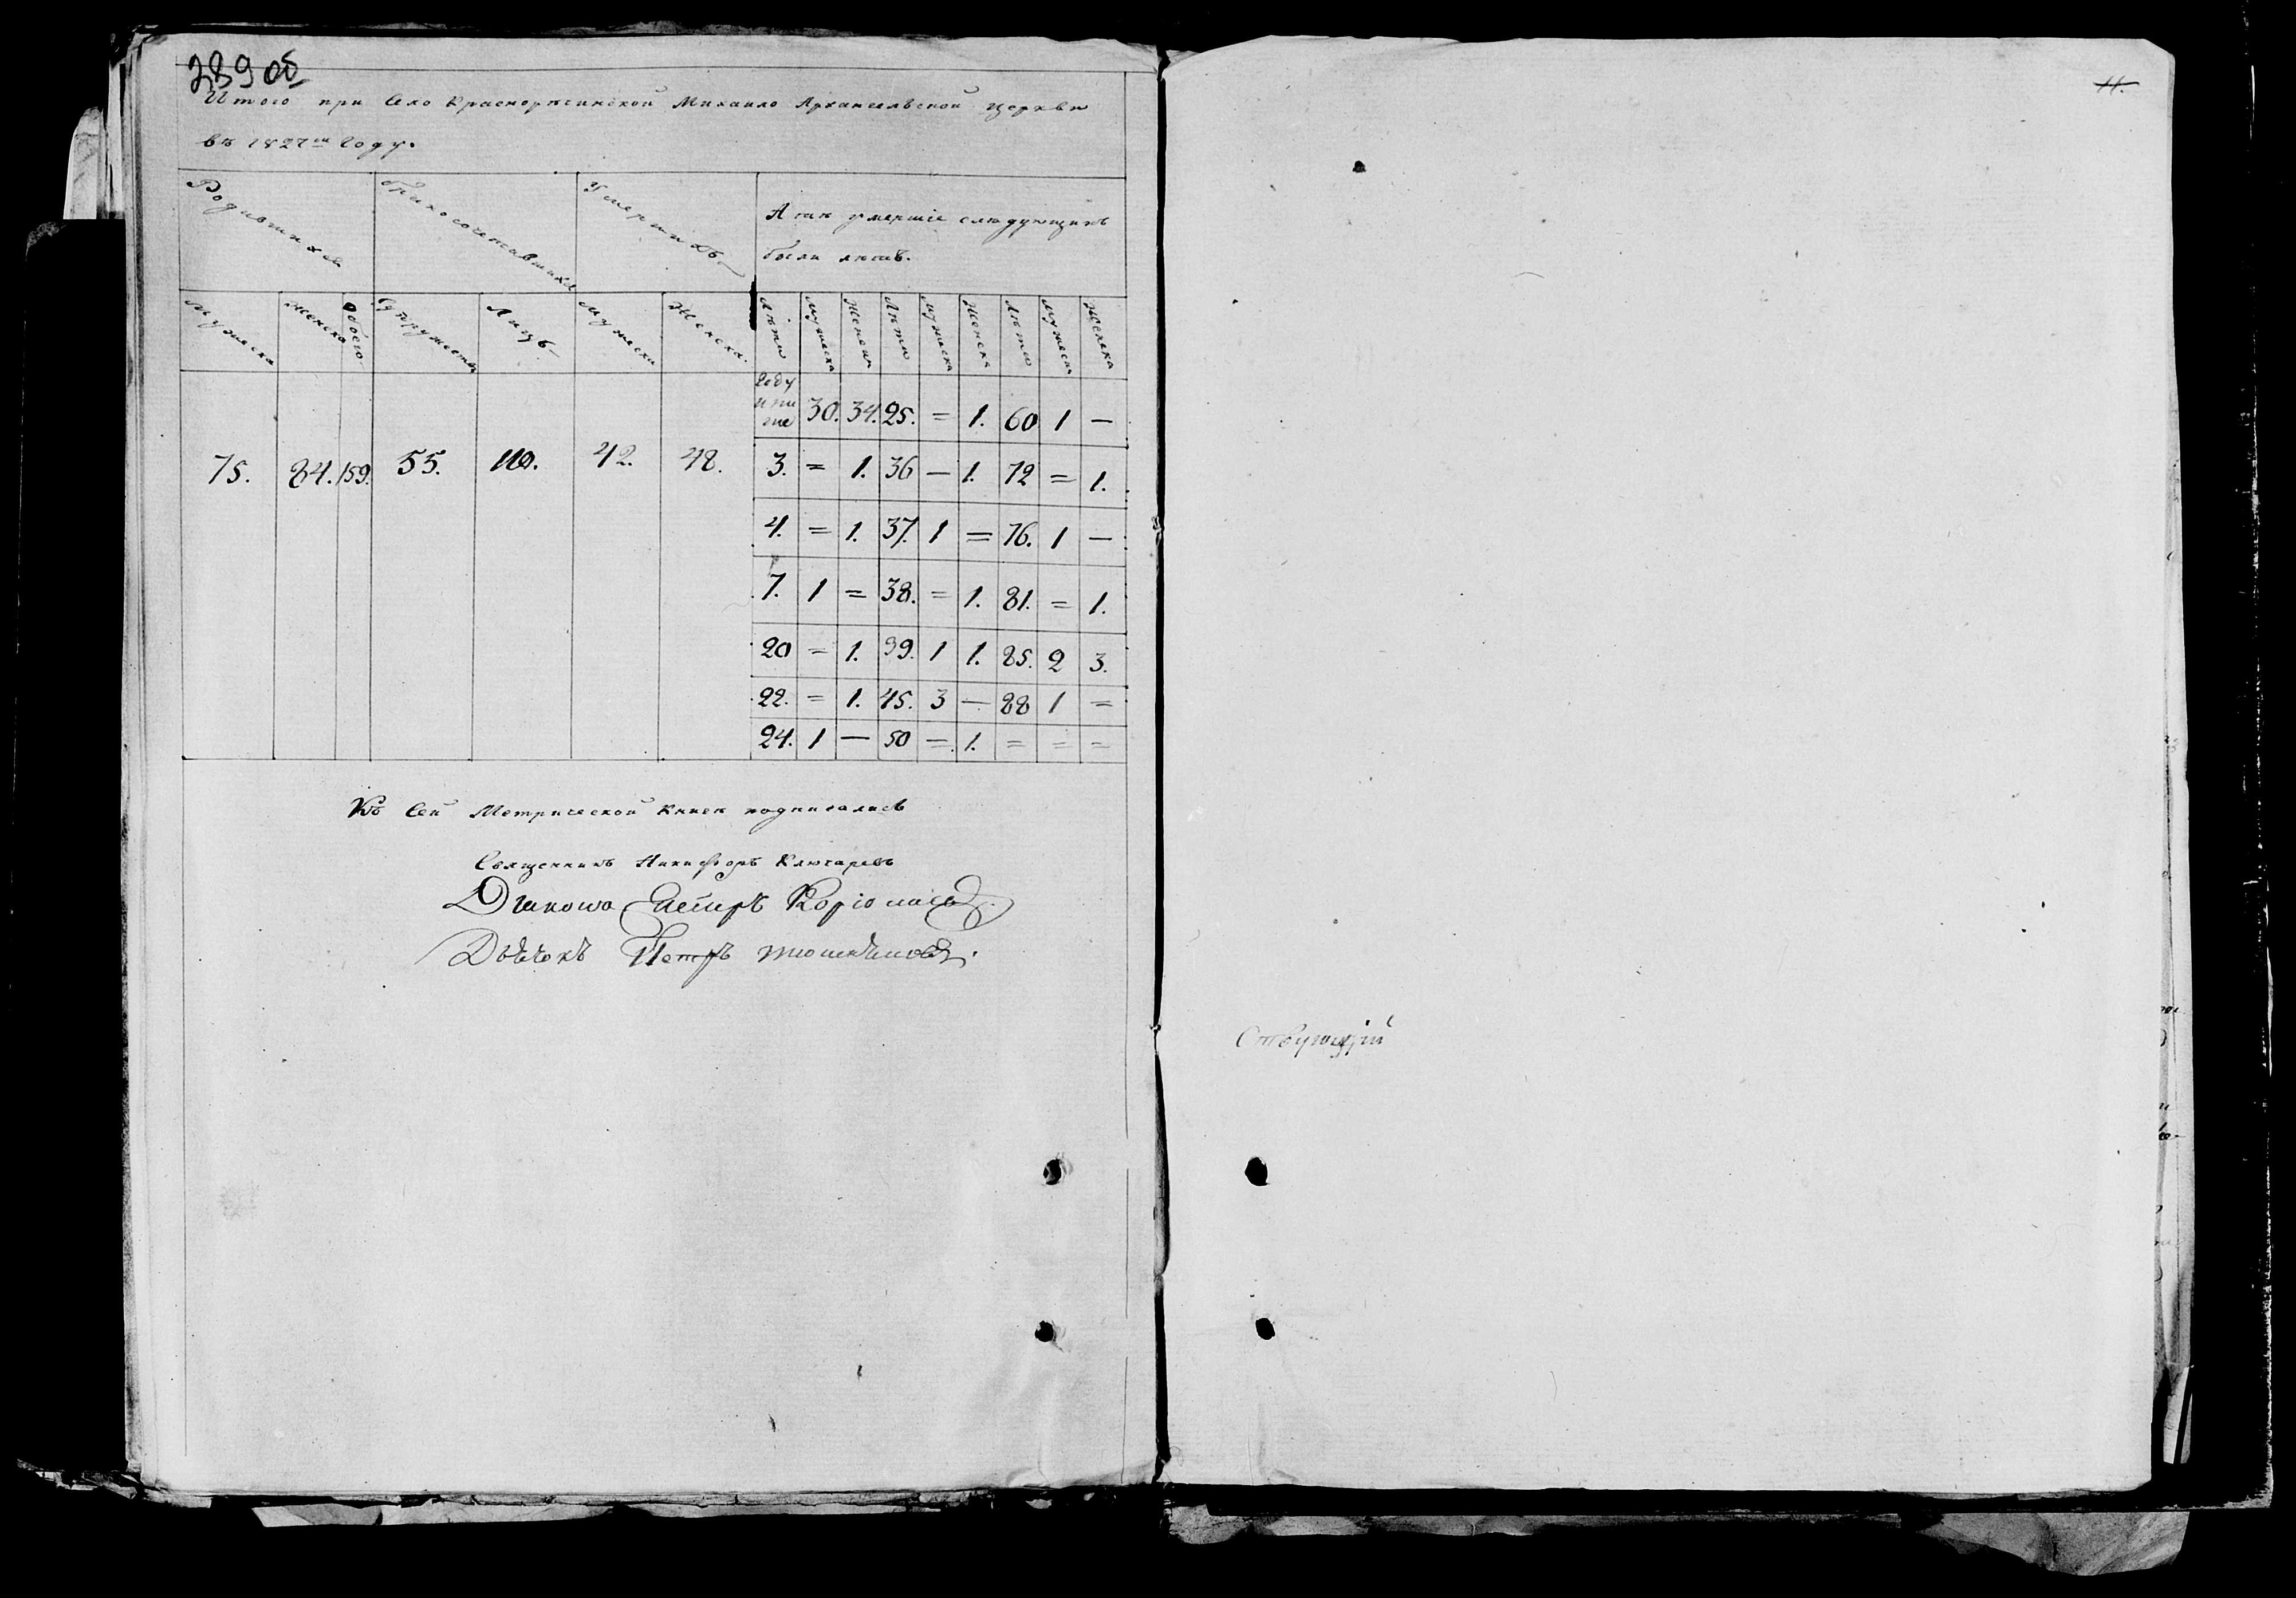 289 об
Итого при Село Красноряжинской Михаило Архангельской церкви
въ 1827м году.
Родившихся Бракосочетавшихся Умершихъ А тѣ умершіе слѣдующихъ
были лѣтъ.
Мужеска Женска Обоего Супружествъ Лицъ Мужеска Женска. Лѣта Мужеска Женска Лѣта Мужеска Женска Лѣта Мужеска Женска
Году
и ни
же 30. 34. 25. = 1. 60 1 —
75. 84. 159. 55. 110. 42. 48. 3. = 1. 36 — 1. 72 = 1.
4. = 1. 37. 1 = 76. 1 —
7. 1 = 38. = 1. 81. = 1.
20 = 1. 39. 1 1. 85. 2 3.
22. = 1. 45. 3 — 88 1 =
24. 1 — 50 = 1. = = =
Къ Сей Метрической книгѣ подписались
Священникъ Никифоръ Ключаревъ
Дьячокъ Петръ
11.